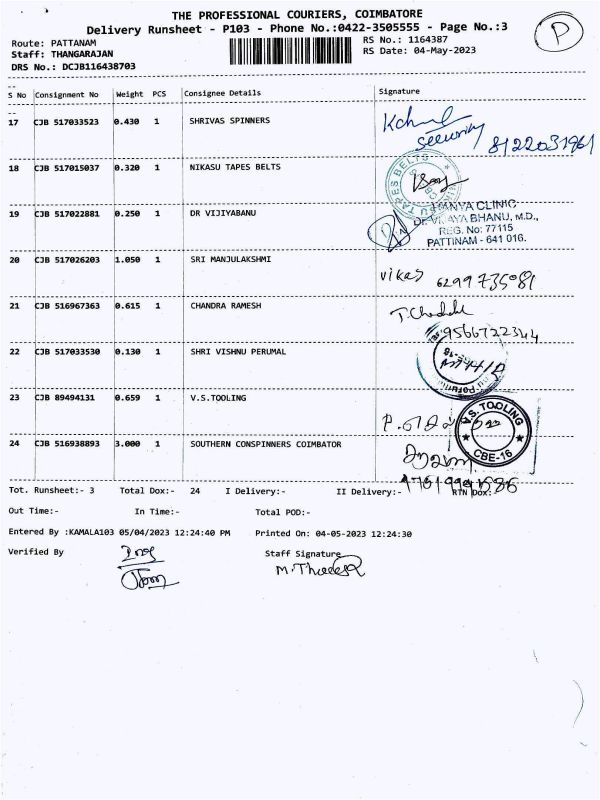 THE PROFESSIONAL COURIERS, COIMBATORE
Delivery Runsheet - P103 - Phone No.:0422-3505555 - Page No.:3
Route: PATTANAM RS No.: 1164387
Staff: THANGARAJAN RS Date: 04-May-2023
DRS No.: DCJB116438703
P
S No Consignment No Weight PCS Consignee Details Signature
17 CJB 517033523 0.430 1 SHRIVAS SPINNERS
Security 8122031961
18 CJB 517015037 0.320 1 NIKASU TAPES BELTS
TAPES BELTS
19 CJB 517022881 0.250 1 DR VIJIYABANU
CLINIC
BHANU, M.D.,
REG. No: 77115
PATTINAM - 641 016.
20 CJB 517026203 1.050 1 SRI MANJULAKSHMI
vikas 6299735081
21 CJB 516967363 0.615 1 CHANDRA RAMESH
9566722344
22 CJB 517033530 0.130 1 SHRI VISHNU PERUMAL
23 CJB 89494131 0.659 1 V.S.TOOLING
V.S. TOOLING
CBE-16
24 CJB 516938893 3.000 1 SOUTHERN CONSPINNERS COIMBATOR
Tot. Runsheet:- 3 Total Dox:- 24 I Delivery:- II Delivery:- RTN Dox:
Out Time:- In Time:- Total POD:-
Entered By :KAMALA103 05/04/2023 12:24:40 PM Printed On: 04-05-2023 12:24:30
Verified By Staff Signature